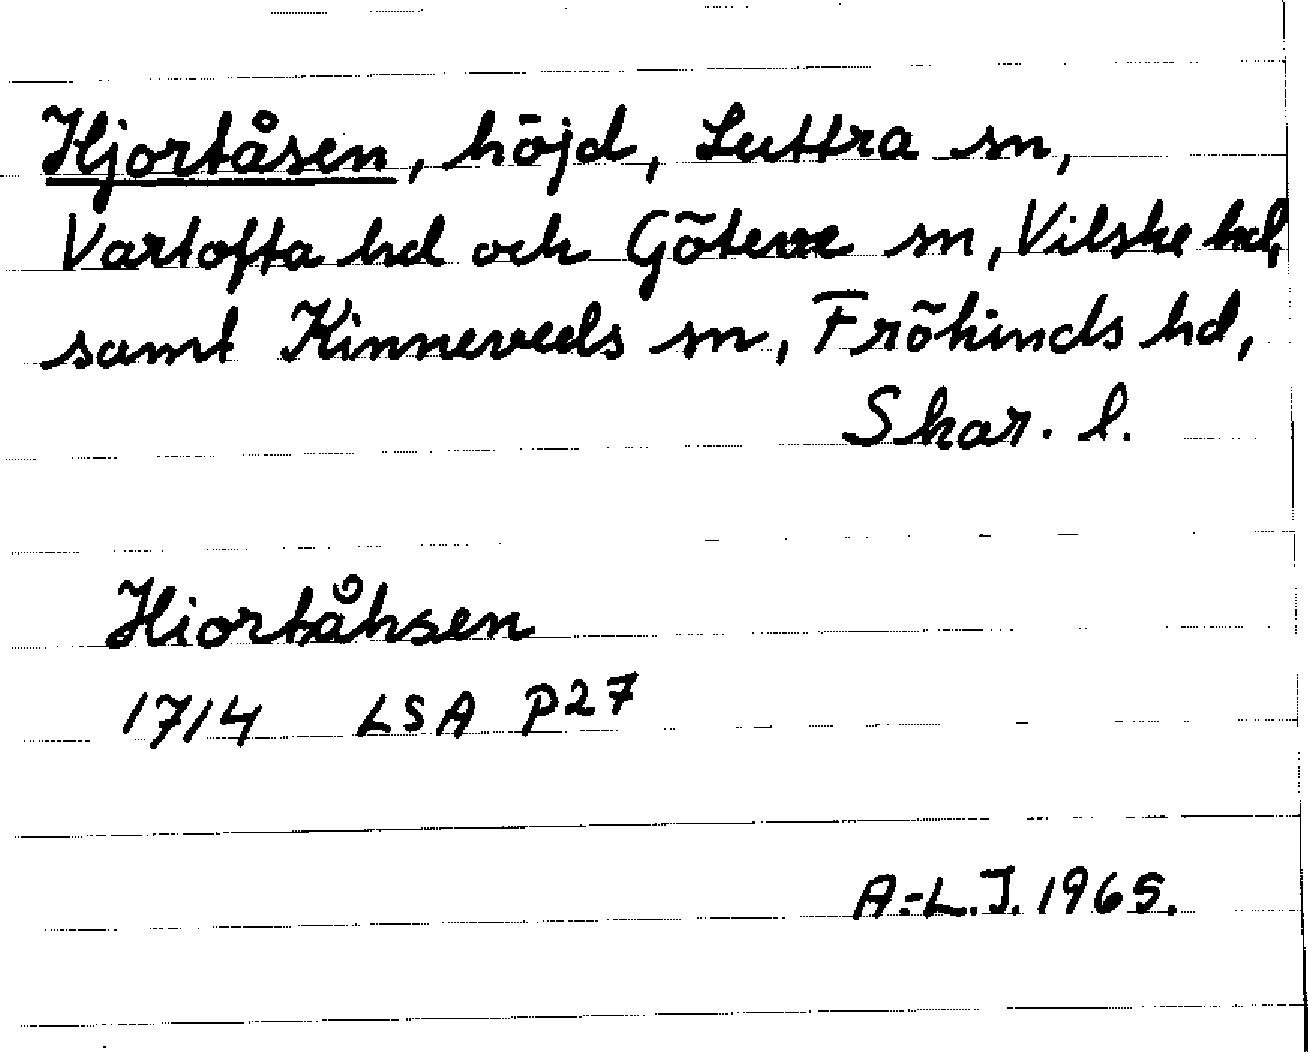 Hjortåsen, höjd, Luttra sn,
Vartofta hd och Göteve sn, Vilske hd,
samt Kinneveds sn, Frökinds hd,
Skar. l.
Hiortåhsen
1714 LSA P27
A-L.J. 1965.